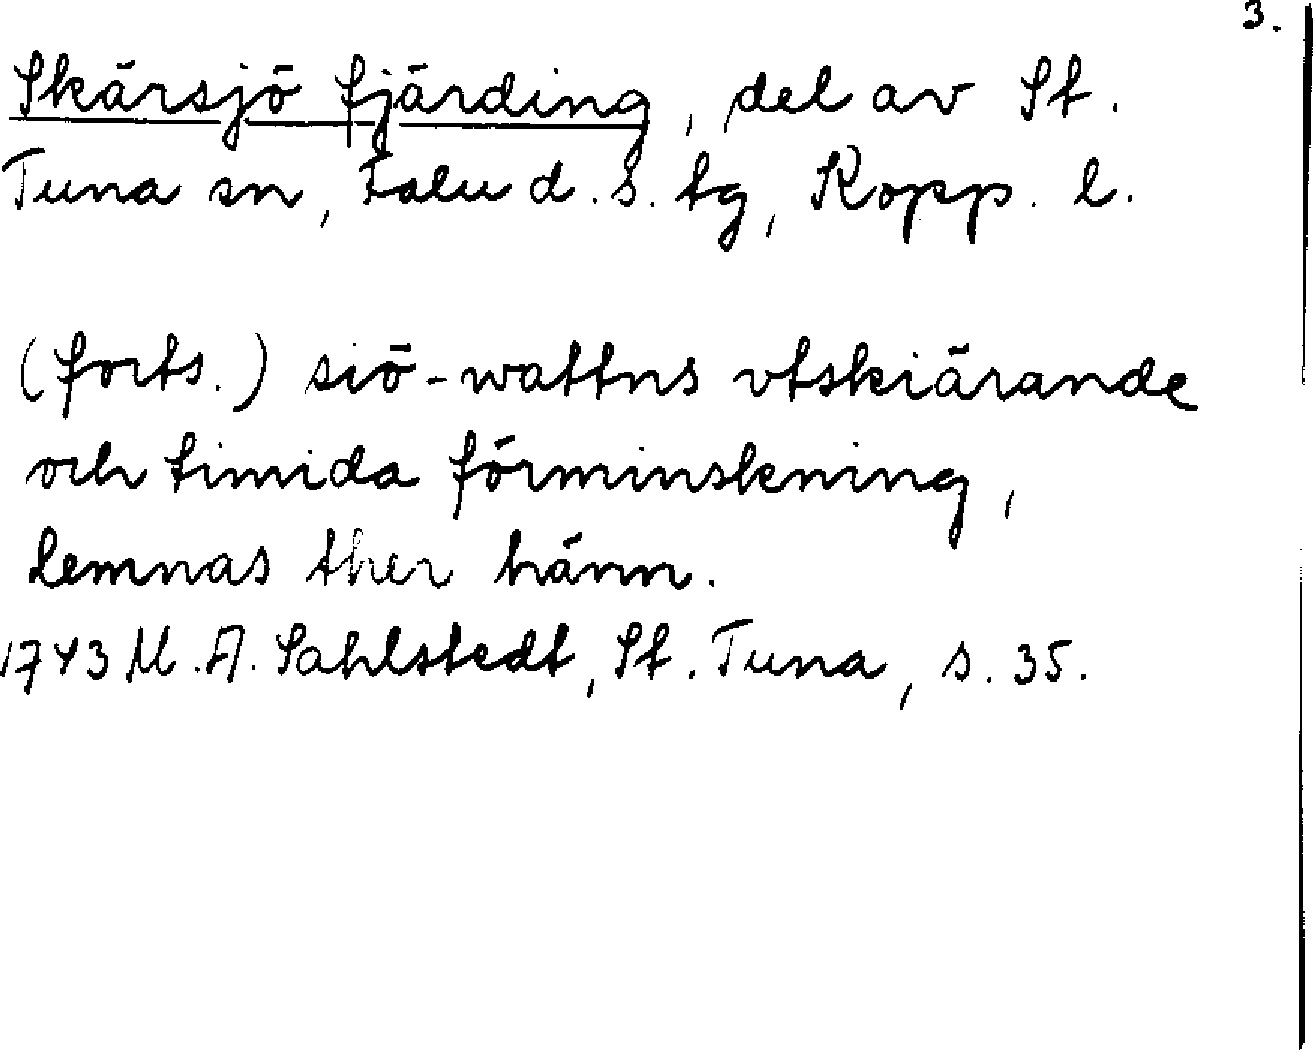 3.
Skärsjö fjärding, del av St.
Tuna sn, Falu d. s. tg, Kopp. l.
(forts.) siö-wattns vtskiärande
och timida förminskning,
lemnas ther hänn.
1743 M. A. Sahlstedt, St. Tuna, s. 35.